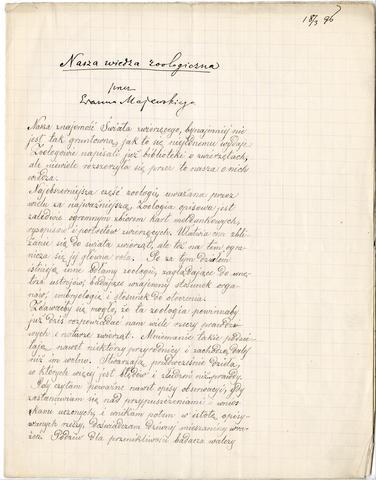 18/3 96
Nasza wiedza zoologiczna
przez
Erazma Majewskiego
Nasza znajomość świata zwierzęcego, bynajmniej nie
jest tak gruntowna, jak to się niejednemu wydaje.
Zoologowie napisali już biblioteki o zwierzętach,
ale niewiele rozszerzyła się przez to nasza o nich
wiedza.
Najobszerniejsza część zoologii, uważana przez
wielu za najważniejszą, zoologia opisowa jest
zaledwie ogromnym zbiorem kart meldunkowych,
rysopisów i portretów zwierzęcych. Ułatwia ona zbli-
żanie się do świata zwierząt, ale też na tem ogra-
nicza się jej główna rola. Po za tym działem
istnieją inne działy zoologii, zaglądające do wnę-
trza ustrojów, badające wzajemny stosunek orga-
nów, embryologię i stosunek do otoczenia.
Zdawałoby się mogło, że ta zoologia powinnaby
już dziś rozpowiadać nam wiele rzeczy prawdzi-
wych o naturze zwierząt. Mniemanie takie podzie-
lają nawet niektórzy przyrodnicy i zachodzą dalej
niż im wolno. Stwarzają przedwcześnie dzieła,
w których więcej jest błędów i złudzeń niż prawdy.
Gdy czytam poważne nawet opisy obserwacji, gdy
zastanawiam się nad przypuszczeniami i wnios-
kami uczonych, i wnikam potem w istotę opisy-
wanych rzeczy, doświadczam dziwnej mieszaniny wra-
żeń. Podziw dla przenikliwości badacza walczy